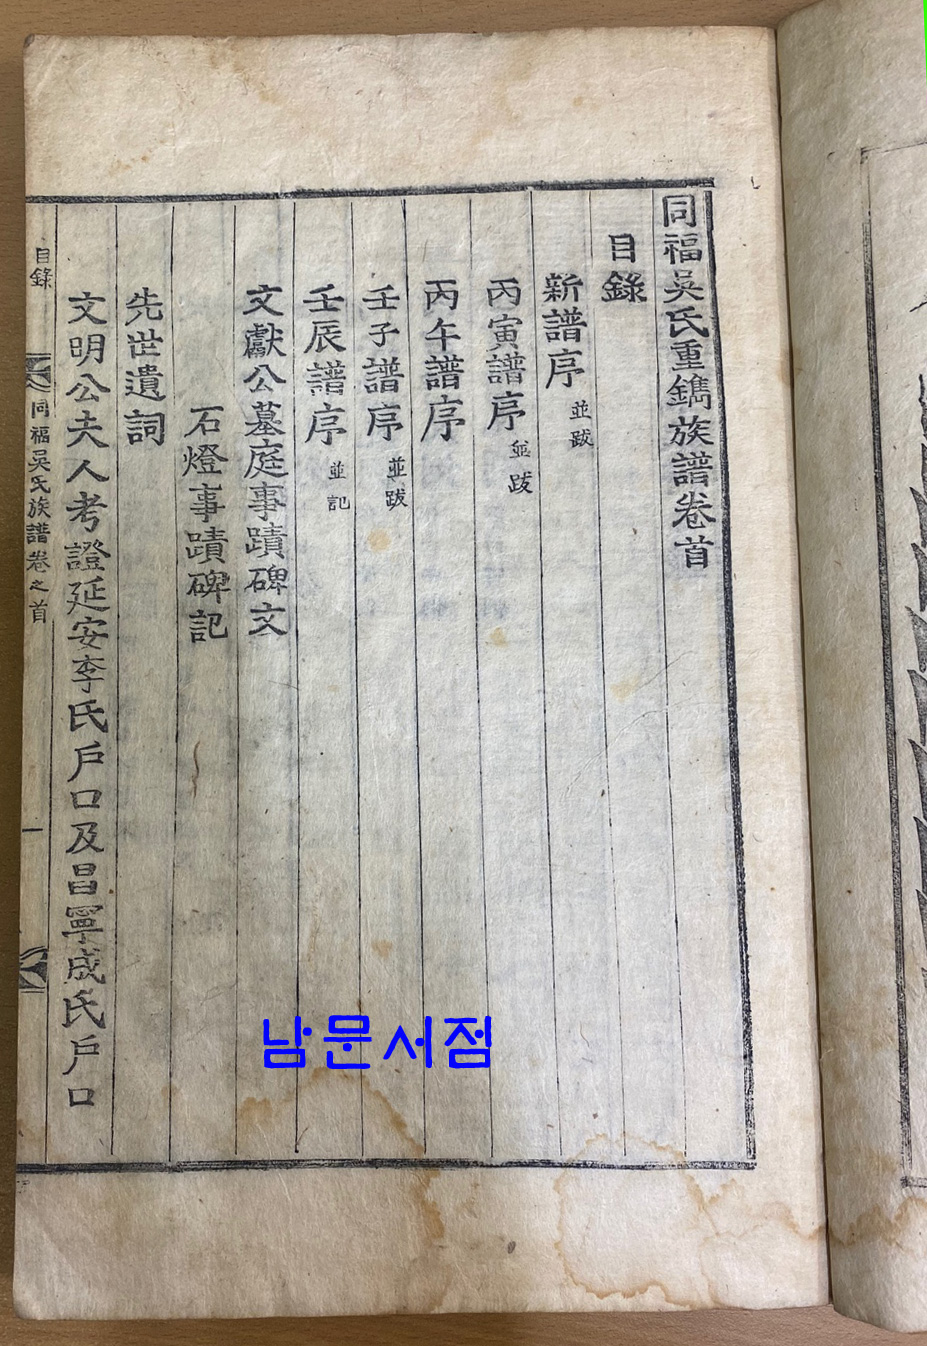 同福吳氏重鐫族譜卷首
目錄
新譜序 並跋
丙寅譜序 並跋
丙午譜序
壬子譜序 並跋
壬辰譜序 並記
文獻公墓庭事蹟碑文
石燈事蹟碑記
先世遺詞
文明公夫人考證延安李氏戶口及昌寧成氏戶口
目錄
同福吳氏族譜卷之首
一
남문서점